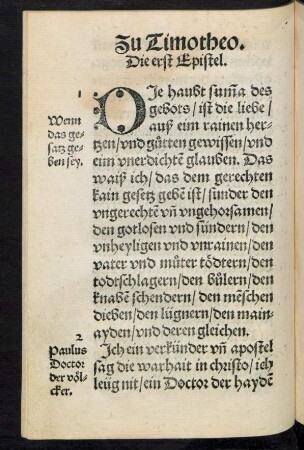 Zu Timotheo.
Die erst Epistel.
1
Wenn
das ge-
satz ge-
ben sey.
DIe haubt sum̃a des
gebots/ ist die liebe/
auß eim rainen her-
tzen/ vnd gůtten gewissen/ vnd
eim vnerdichtẽ glauben. Das
waiß ich/ das dem gerechten
kain gesetz gebẽ ist/ sunder den
vngerechtẽ vñ vngehorsamen/
den gotlosen vnd sündern/ den
vnheyligen vnd vnrainen/ den
vater vnd můter tödtern/ den
todtschlagern/ den bůlern/ den
knabẽ schendern/ den mẽschen
dieben/ den lügnern/ den main-
ayden/ vnd deren gleichen.
2
Paulus
Doctor
der völ-
cker.
Ich ein verkünder vñ apostel
sag die warhait in christo/ ich
leüg nit/ ein Doctor der haydẽ